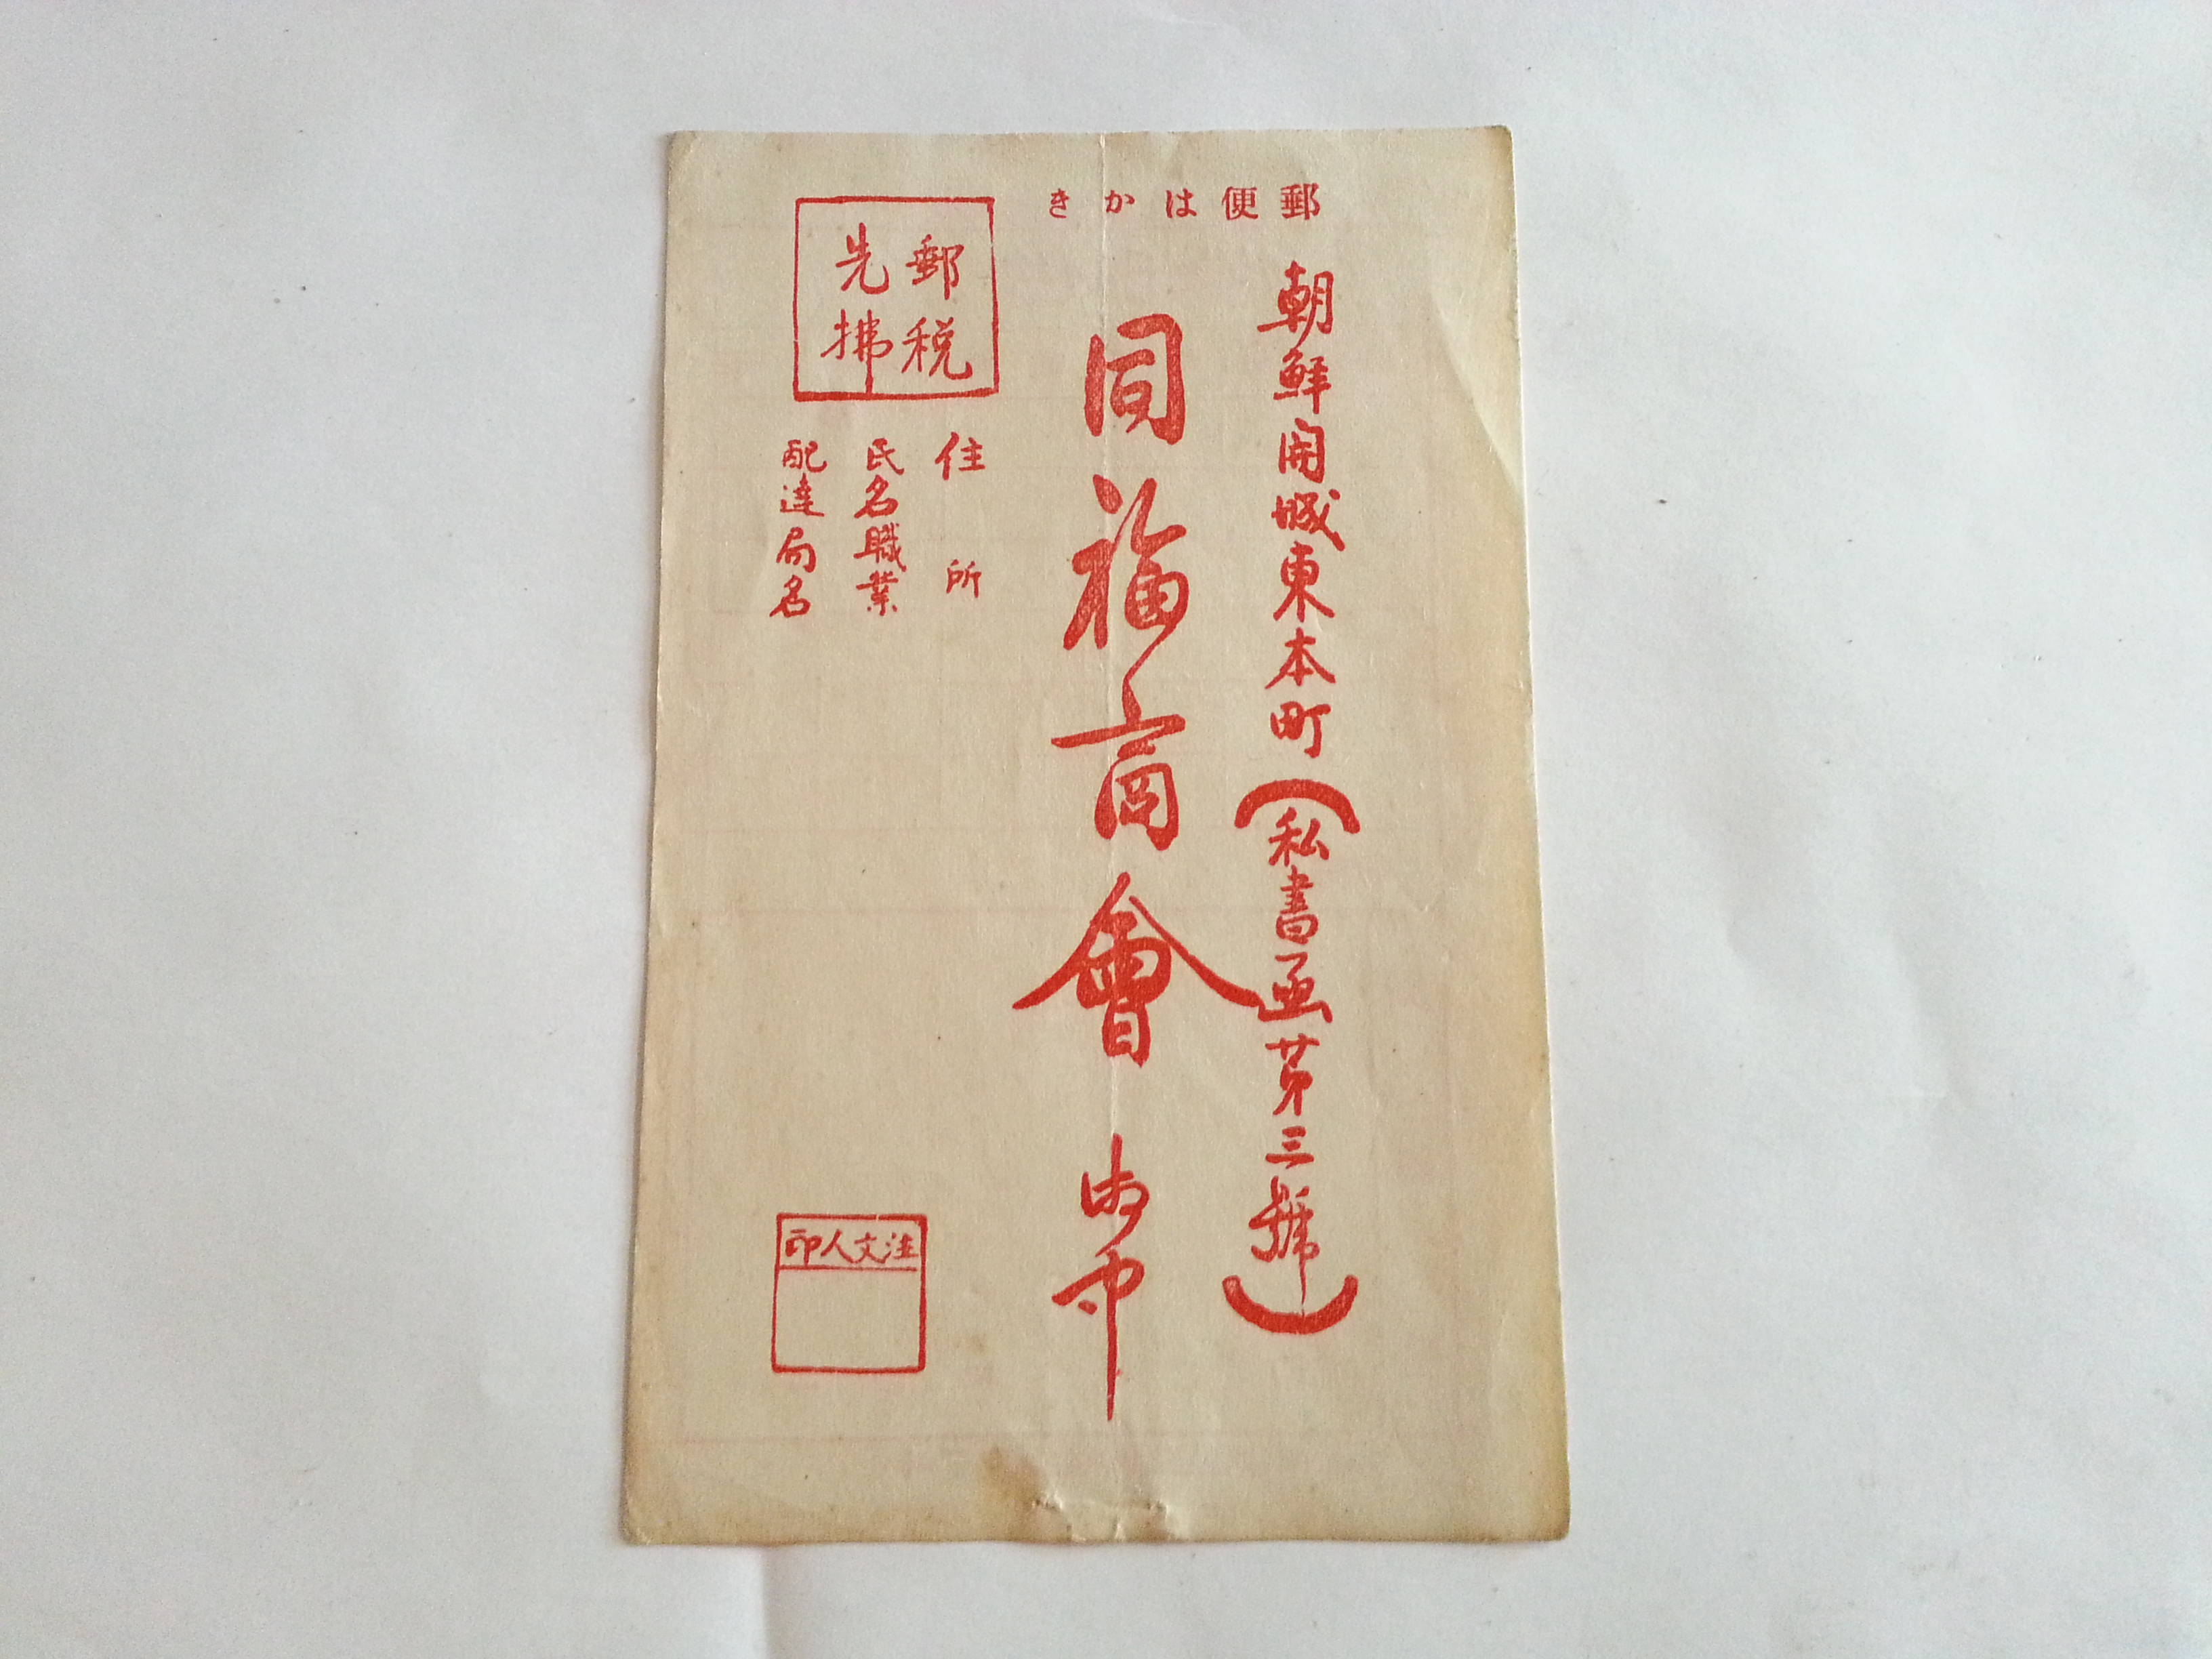 郵便はかき
朝鮮開城東本町（私書函第三號）
同福商會 御中
郵税
先拂
住所
氏名職業
配達局名
注文人印